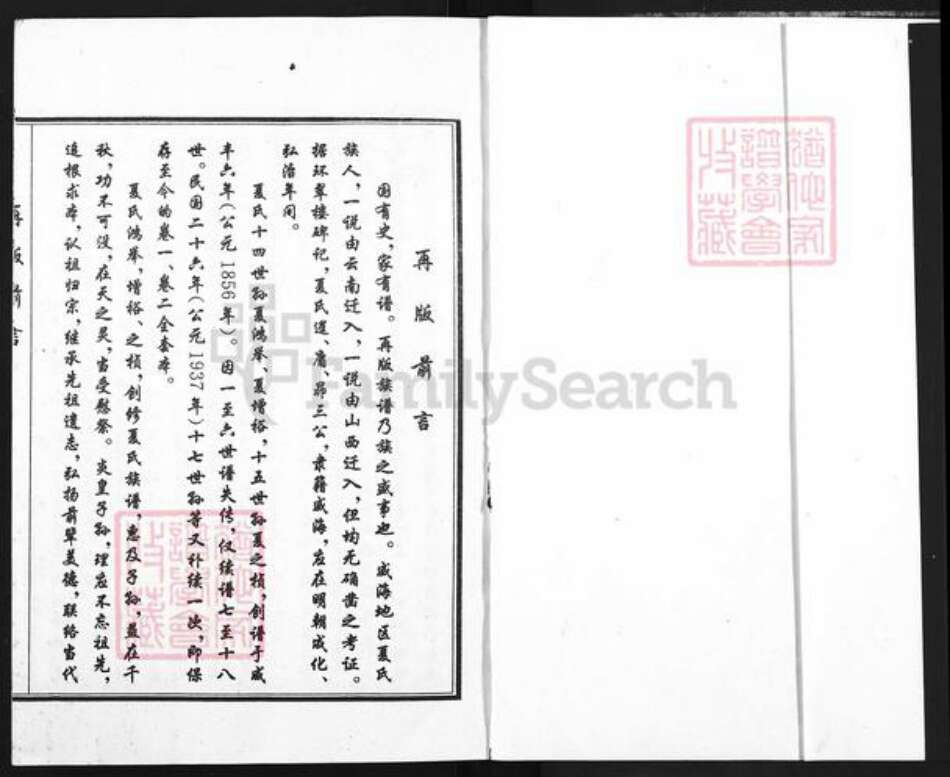 再版前言
国有史，家有谱。再版族谱乃族之盛事也。威海地区夏氏
族人，一说由云南迁入，一说由山西迁入，但均无确凿之考证。
据环翠楼碑记，夏氏道、廣、昴三公，隶籍威海，应在明朝成化、
弘治年间。
夏氏十四世孙夏鸿举、夏增裕，十五世孙夏之桢，创谱于咸
丰六年（公元1856年）。因一至六世谱失传，仅续谱七至十八
世。民国二十六年（公元1937年）十七世孙等又补续一次，即保
存至今的卷一、卷二全套本。
夏氏鸿举，增裕、之桢，创修夏氏族谱，惠及子孙，益在千
秋，功不可没，在天之灵，当受慰祭。炎皇子孙，理应不忘祖先，
追根求本，认祖归宗，继承先祖遗志，弘扬前辈美德，联络当代
再版前言
FamilySearch
譜學會
收藏
譜學會
收藏